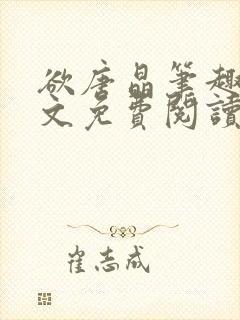 欲唐晶筆趣
文免費閱讀
崔志成